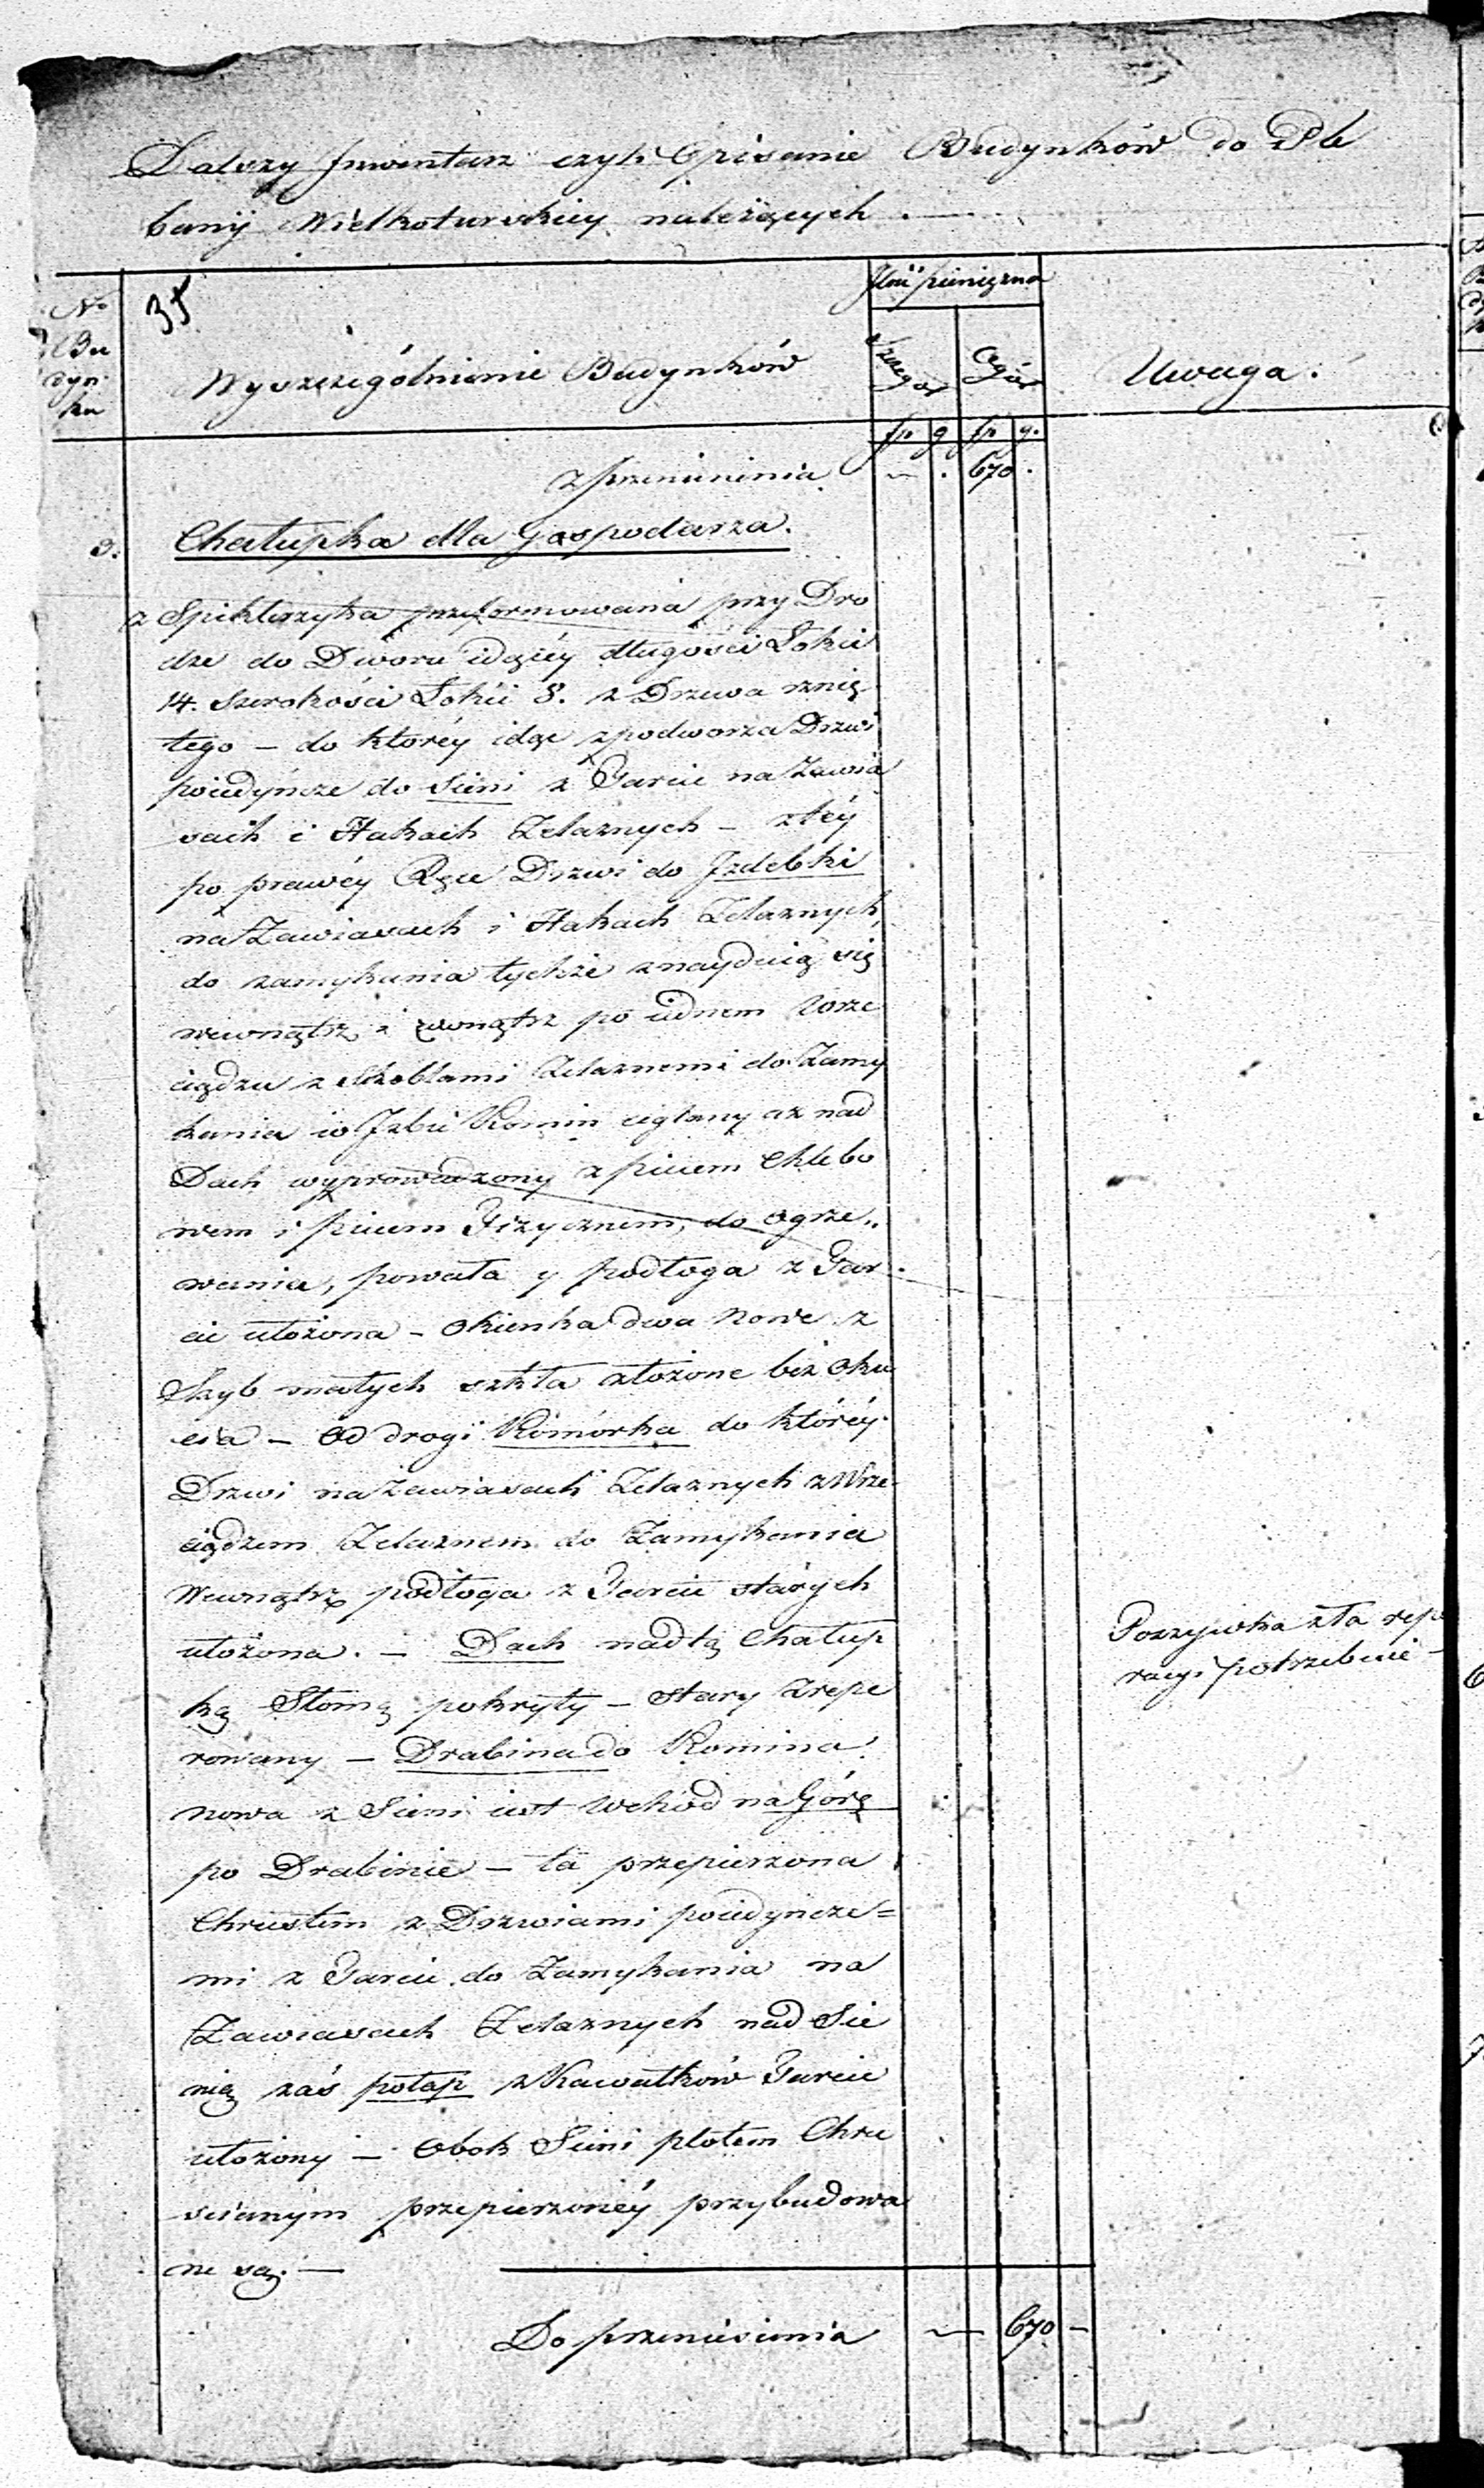 Dalszy Inwentarz czyli Opisanie Budynków do Ple
banij Wielkoturskiey należących.
No
Bu
dyn
ku
35
Wyszczególnienie Budynków
Ilość pieniężna
Szczegół
Ogół
Uwaga.
fp g fp g.
z przeniesienia — . 670 .
3. Chałupka dla Gospodarza.
z Spichlerzyka przeformowana przy Dro
dze do Dworu idącéy długości Łokci
14. szerokości Łokci 8. z Drzewa rznię
tego – do któréy idąc z podworza Drzwi
poiedyńcze do Sieni z Tarcic na Zawia
sach i Hakach Żelaznych – z téy
po prawéy Ręce Drzwi do Izdebki
na Zawiasach i Hakach Żelaznych
do zamykania tychże znayduią się
wewnątrz i zewnątrz po iednem Wrze
ciądzu z Skoblami Żelaznemi do Zamy
kania w Izbie Komin ceglany aż nad
Dach wyprowadzony z piecem Chlebo
wem i piecem Fizycznem, do ogrze„
wania, powała y podłoga z Tar
cic ułożona – okienka dwa nowe z
Szyb małych szkła złożone bez oku
cia – od drogi Komórka do któréy
Drzwi na Zawiasach Żelaznych z Wrze-
ciądzem Żelaznem do Zamykania
wewnątrz podłoga z Tarcic starych
ułożona. – Dach nad tą Chałup
ką Słomą pokryty – stary zrepe
rowany – Drabina do Komina
nowa z Sieni iest wchód na Górę
po Drabinie – ta przepierzona
Chrustem z Drzwiami poiedyńcze=
mi z Tarcic do Zamykania na
Zawiasach Żelaznych nad Sie
nią zaś połap z Kawałków Tarcic
ułożony – Obok Sieni płotem Chru
ścianym przepierzonéy przybudowa
ne są. —
Poszywka zła repe
racyi potrzebuie –
Do przeniesienia — 670 –